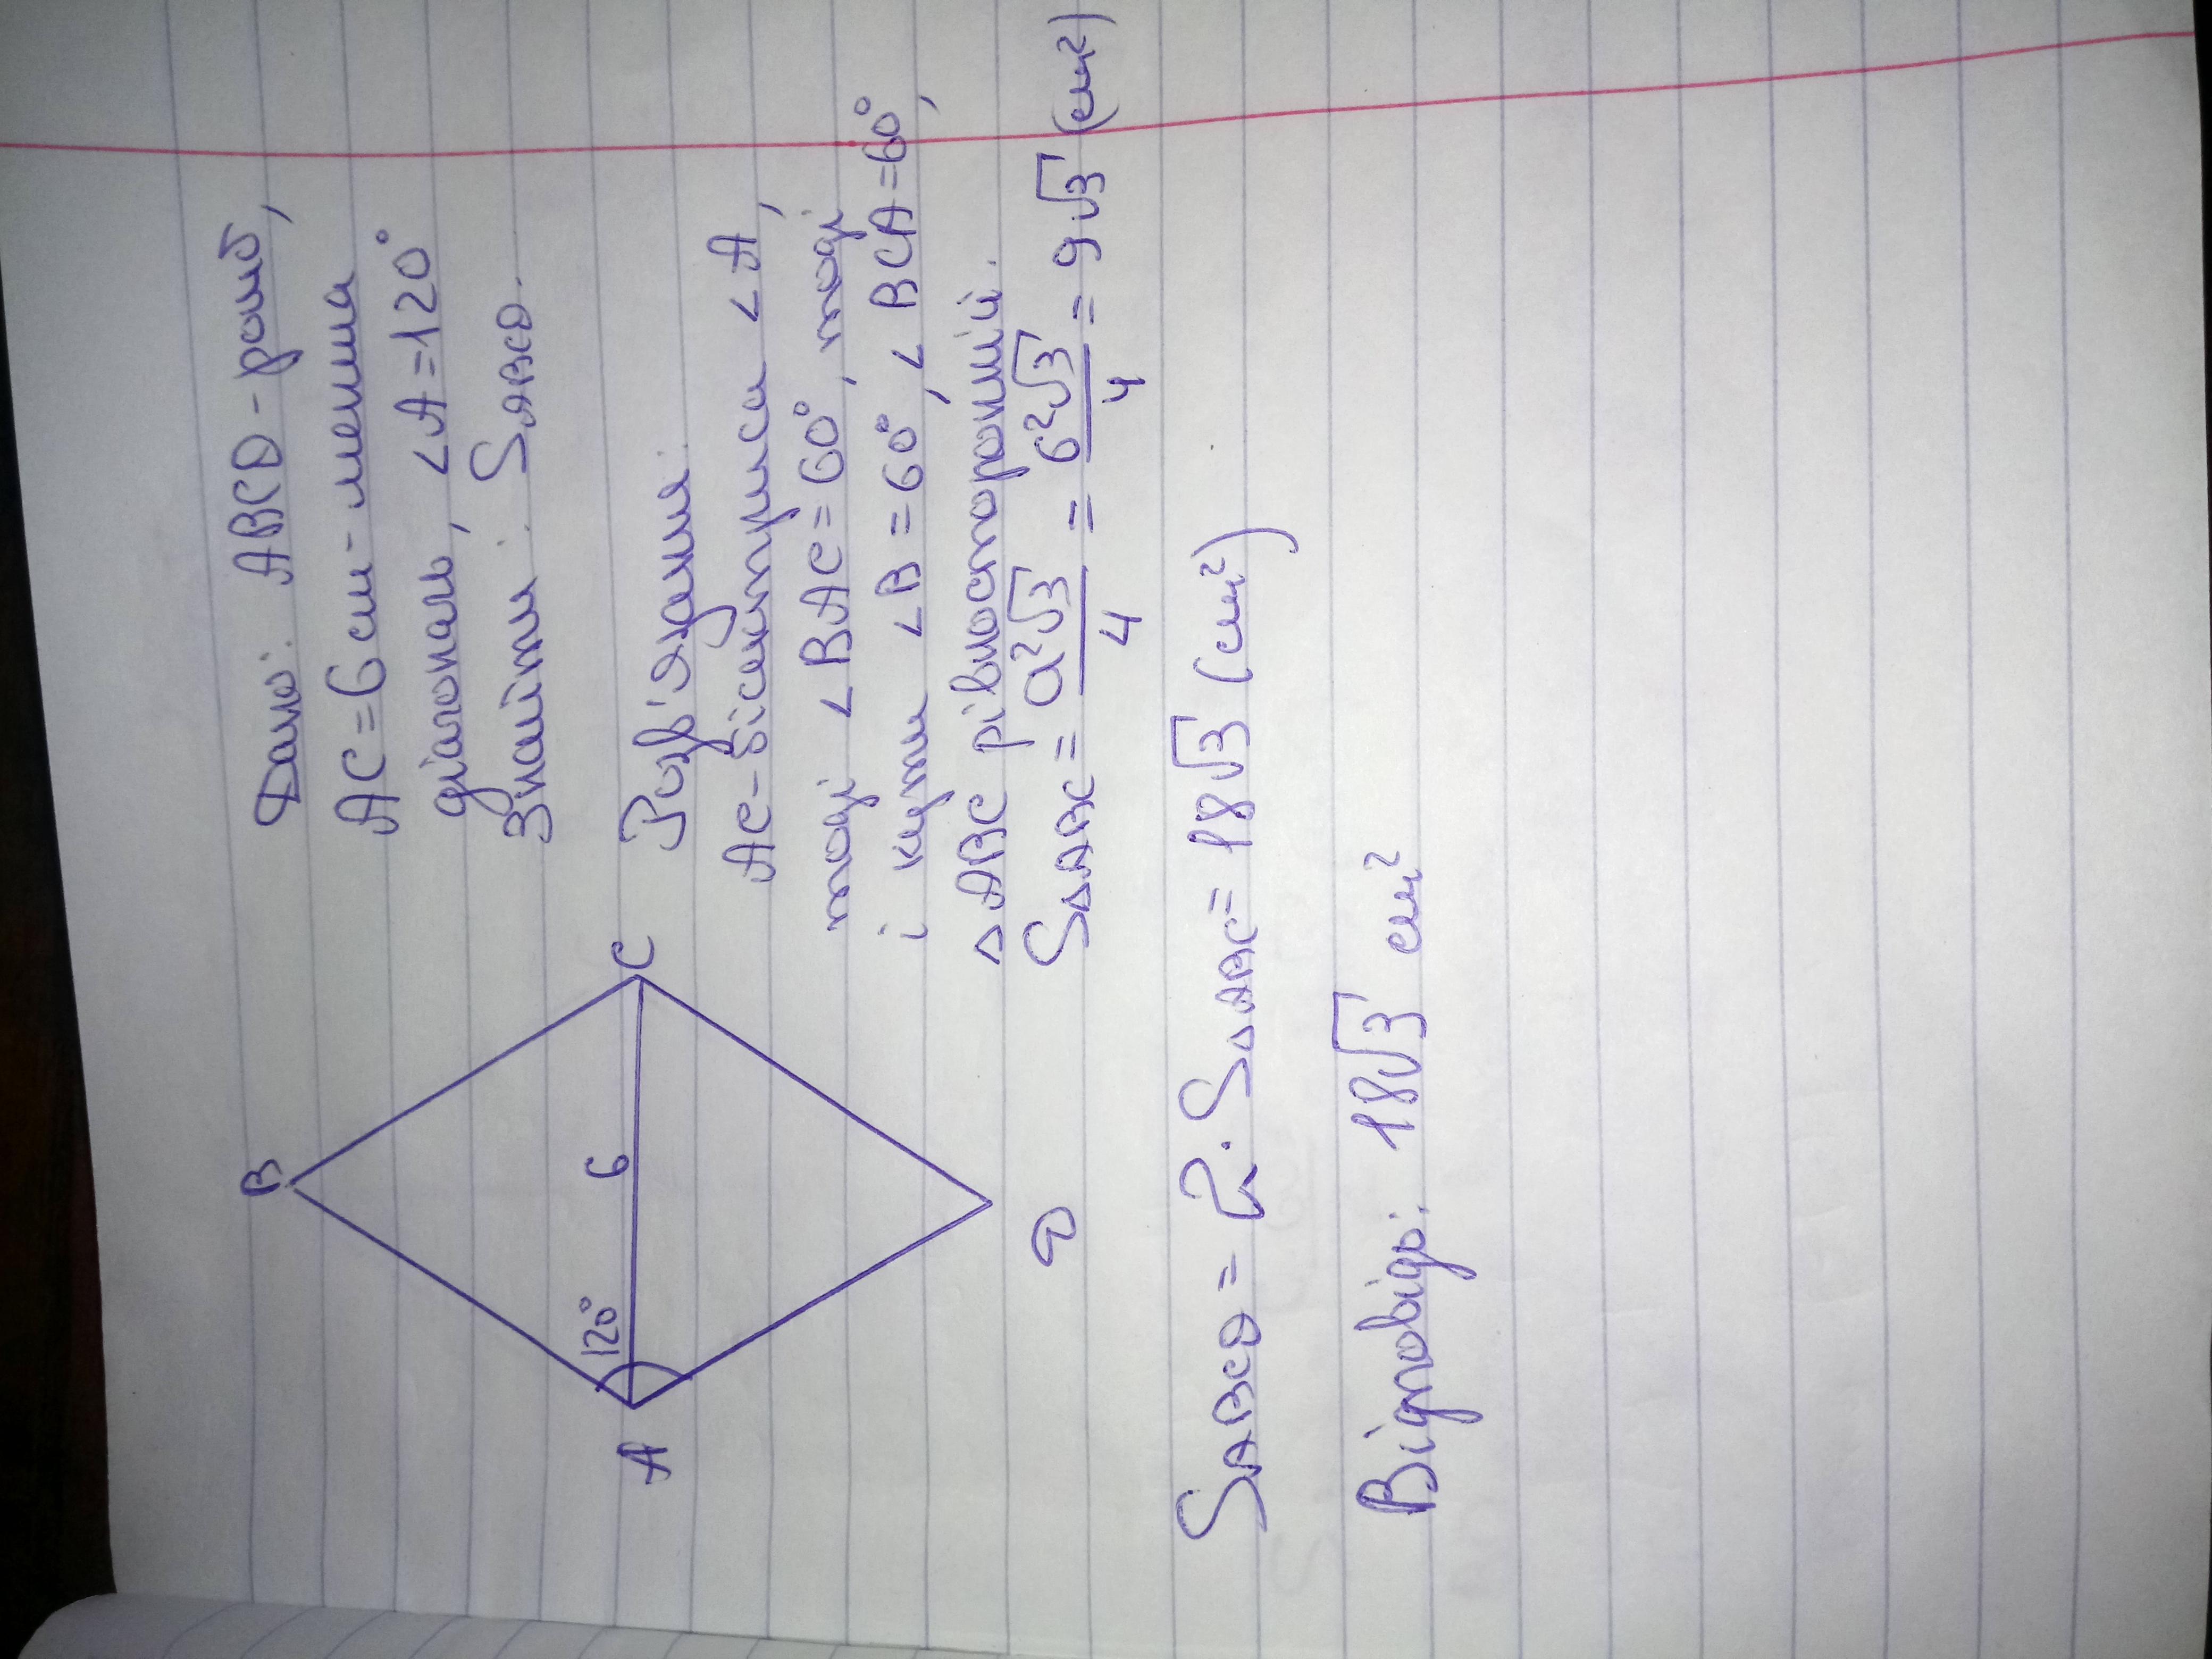 B
A
120°
6
C
D
Дано: ABCD - ромб,
AC = 6 см - менша
діагональ, ∠A = 120°
Знайти: SABCD.
Розв'язання:
AC - бісектриса ∠A,
тоді ∠BAC = 60°, тоді
і кути ∠B = 60°, ∠BCA = 60°,
△ABC рівносторонній.
S△ABC = a²√3/4 = 6²√3/4 = 9√3 (см²)
SABCD = 2 · S△ABC = 18√3 (см²)
Відповідь: 18√3 см²